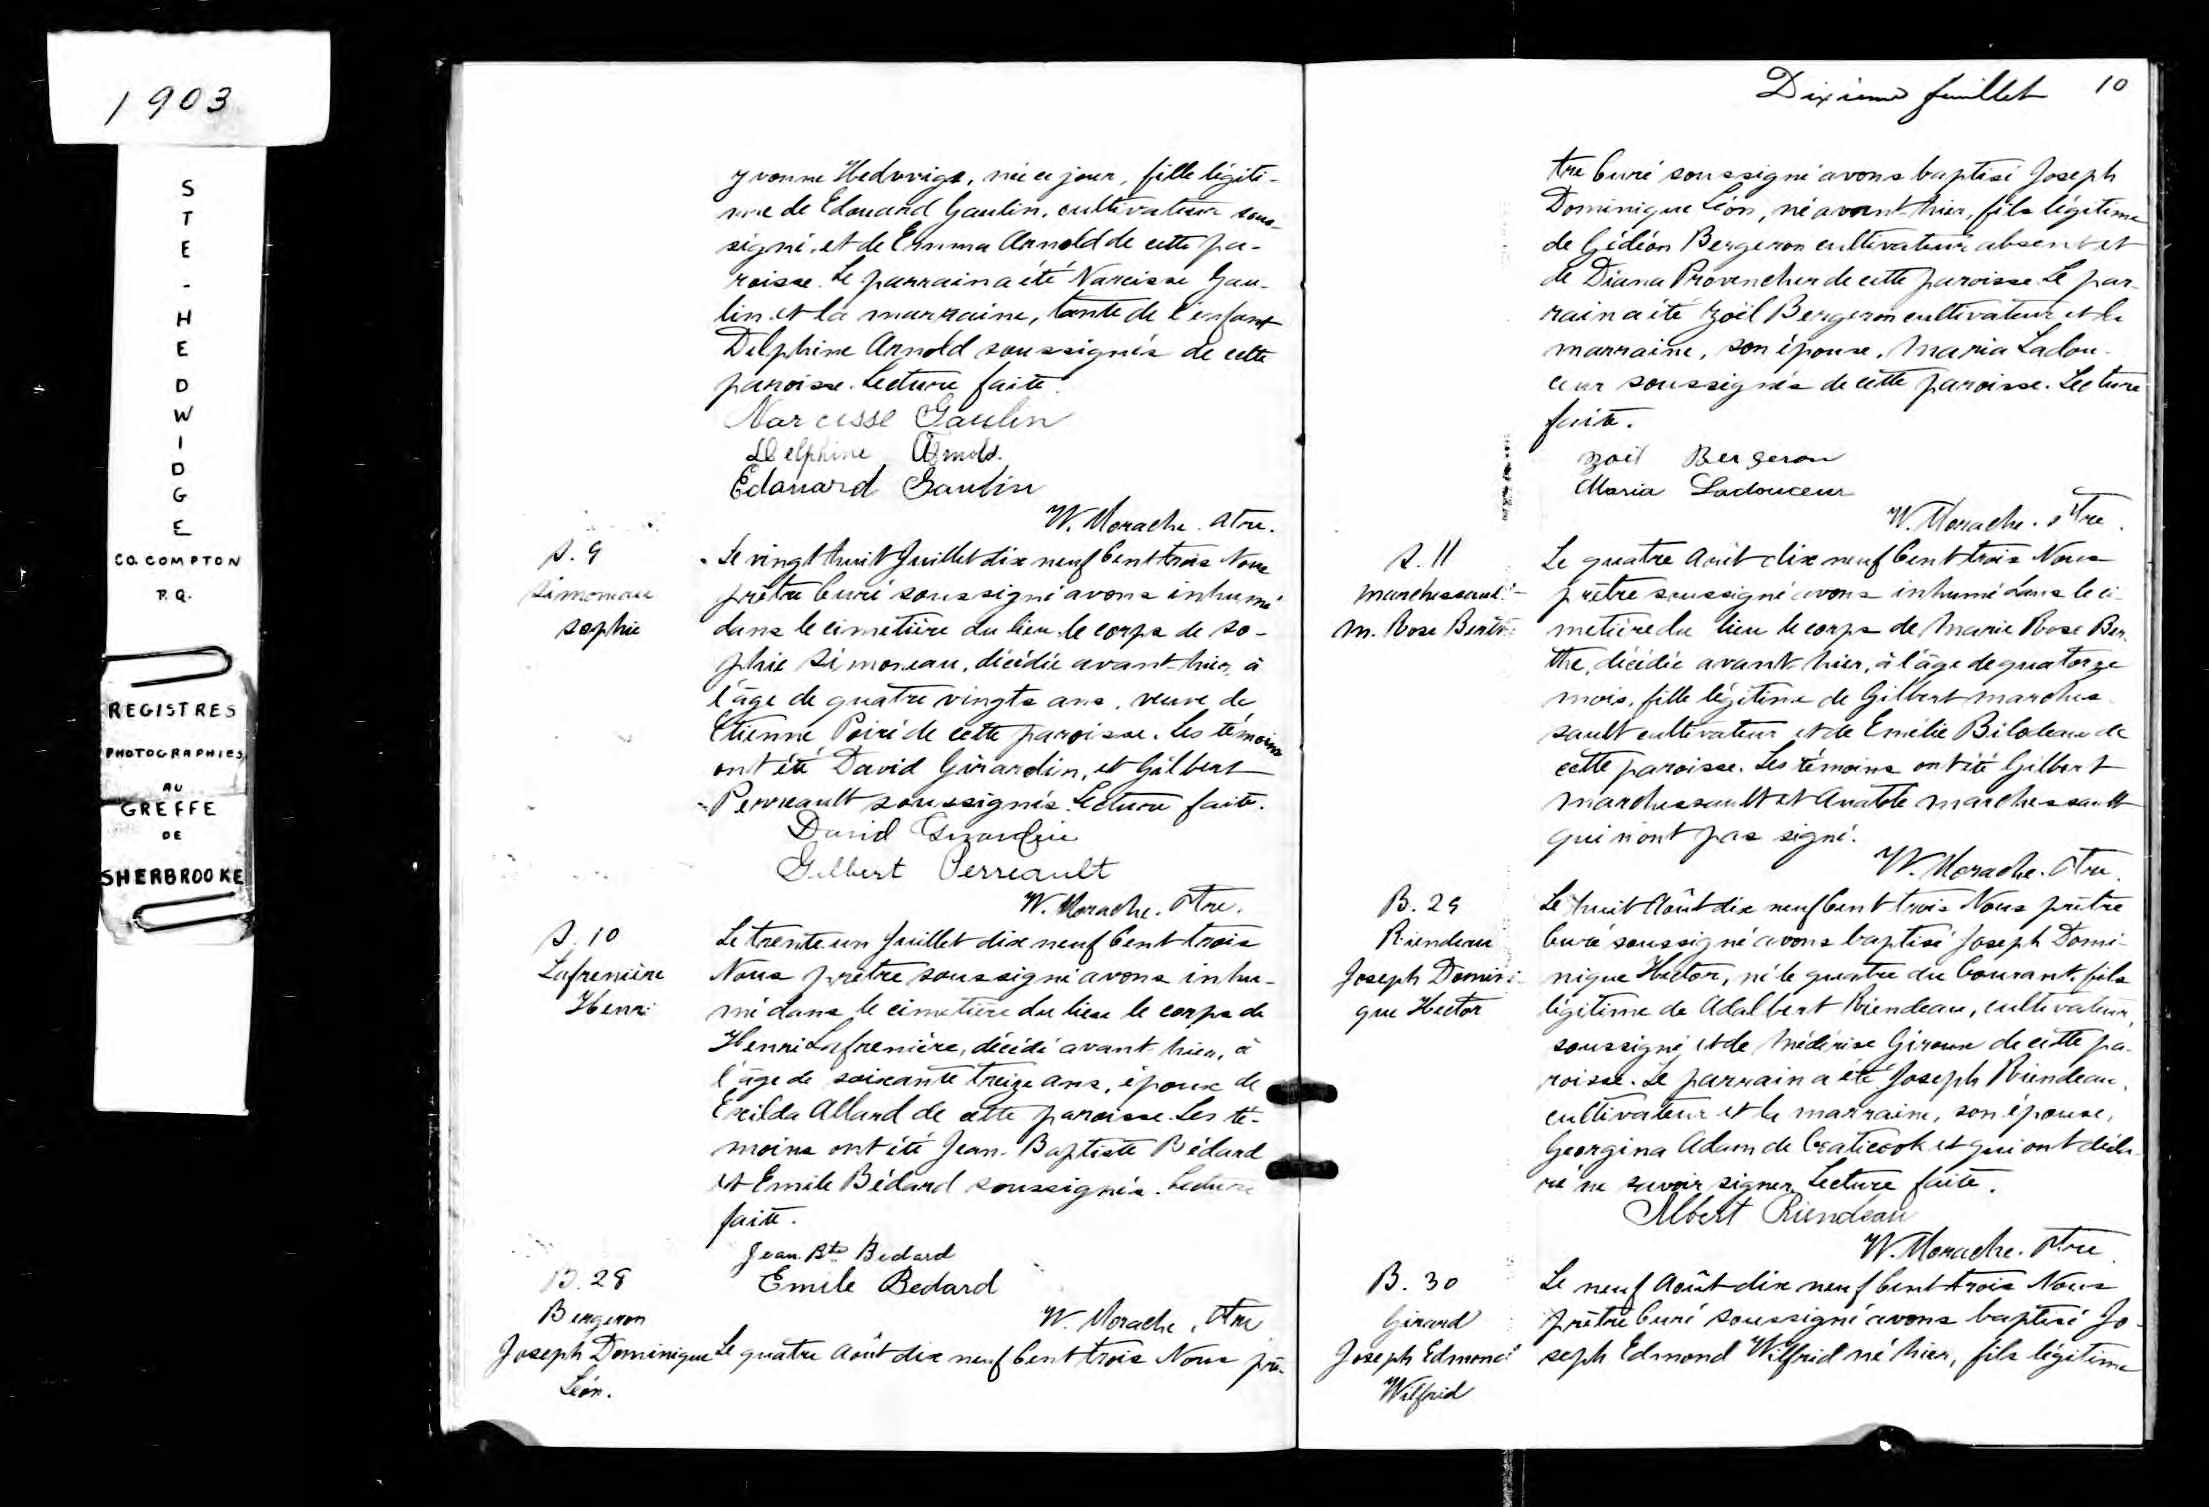 1903
STE-HEDWIDGE
CO. COMPTON
P.Q.
REGISTRES
PHOTOGRAPHIES
AU
GREFFE
DE
SHERBROOKE
yvonne Hedwige, née ce jour, fille légiti-
me de Edouard Gaulin, cultivateur sous-
signé, et de Emma Arnold de cette pa-
roisse. Le parrain a été Narcisse Gau-
lin et la marraine, tante de l'enfant
Delphine Arnold soussignés de cette
paroisse. Lecture faite.
Narcisse Gaulin
Delphine Arnold.
Edouard Gaulin
W. Morache. Ptre.
S. 9
Simoneau
Sophie
Le vingt huit Juillet dix neuf Cent trois Nous
prêtre Curé soussigné avons inhumé
dans le cimetière du lieu le corps de So-
phie Simoneau, décédée avant-hier, à
l'âge de quatre vingts ans, veuve de
Etienne Poiré de cette paroisse. Les témoins
ont été David Girardin, et Gilbert
Perreault soussignés. Lecture faite.
David Girardin
Gilbert Perreault
W. Morache. Ptre.
S. 10
Lafrenière
Henri
Le trente un Juillet dix neuf Cent trois
Nous prêtre soussigné avons inhu-
mé dans le cimetière du lieu le corps de
Henri Lafrenière, décédé avant-hier, à
l'âge de soixante treize ans, époux de
Exilda Allard de cette paroisse. Les té-
moins ont été Jean-Baptiste Bédard
et Emile Bédard soussignés. Lecture
faite.
Jean Bte Bedard
Emile Bedard
W. Morache, Ptre
B. 28
Bergeron
Joseph Dominique
Léon.
Le quatre Août dix neuf Cent trois Nous prê-
Dixième feuillet 10
tre Curé soussigné avons baptisé Joseph
Dominique Léon, né avant-hier, fils légitime
de Gédéon Bergeron cultivateur absent et
de Diana Provencher de cette paroisse. Le par-
rain a été Zoël Bergeron cultivateur et la
marraine, son épouse, Maria Ladou-
ceur soussignés de cette paroisse. Lecture
faite.
Zoël Bergeron
Maria Ladouceur
W. Morache. Ptre.
S. 11
Marchessault
M. Rose Berthe
Le quatre Août dix neuf Cent trois Nous
prêtre soussigné avons inhumé dans le ci-
metière du lieu le corps de Marie Rose Ber-
the, décédée avant-hier, à l'âge de quatorze
mois, fille légitime de Gilbert Marches-
sault cultivateur et de Emélie Bilodeau de
cette paroisse. Les témoins ont été Gilbert
Marchessault et Anatole Marchessault
qui n'ont pas signé.
W. Morache. Ptre.
B. 29
Riendeau
Joseph Domini-
que Hector
Le huit Août dix neuf Cent trois Nous prêtre
Curé soussigné avons baptisé Joseph Domi-
nique Hector, né le quatre du Courant, fils
légitime de Adalbert Riendeau, cultivateur,
soussigné et de Médérise Giroux de cette pa-
roisse. Le parrain a été Joseph Riendeau,
cultivateur et la marraine, son épouse,
Georgina Adam de Coaticook et qui ont décla-
ré ne savoir signer. Lecture faite.
Albert Riendeau
W. Morache. Ptre
B. 30
Girard
Joseph Edmond
Wilfrid
Le neuf Août dix neuf Cent trois Nous
prêtre Curé soussigné avons baptisé Jo-
seph Edmond Wilfrid né hier, fils légitime